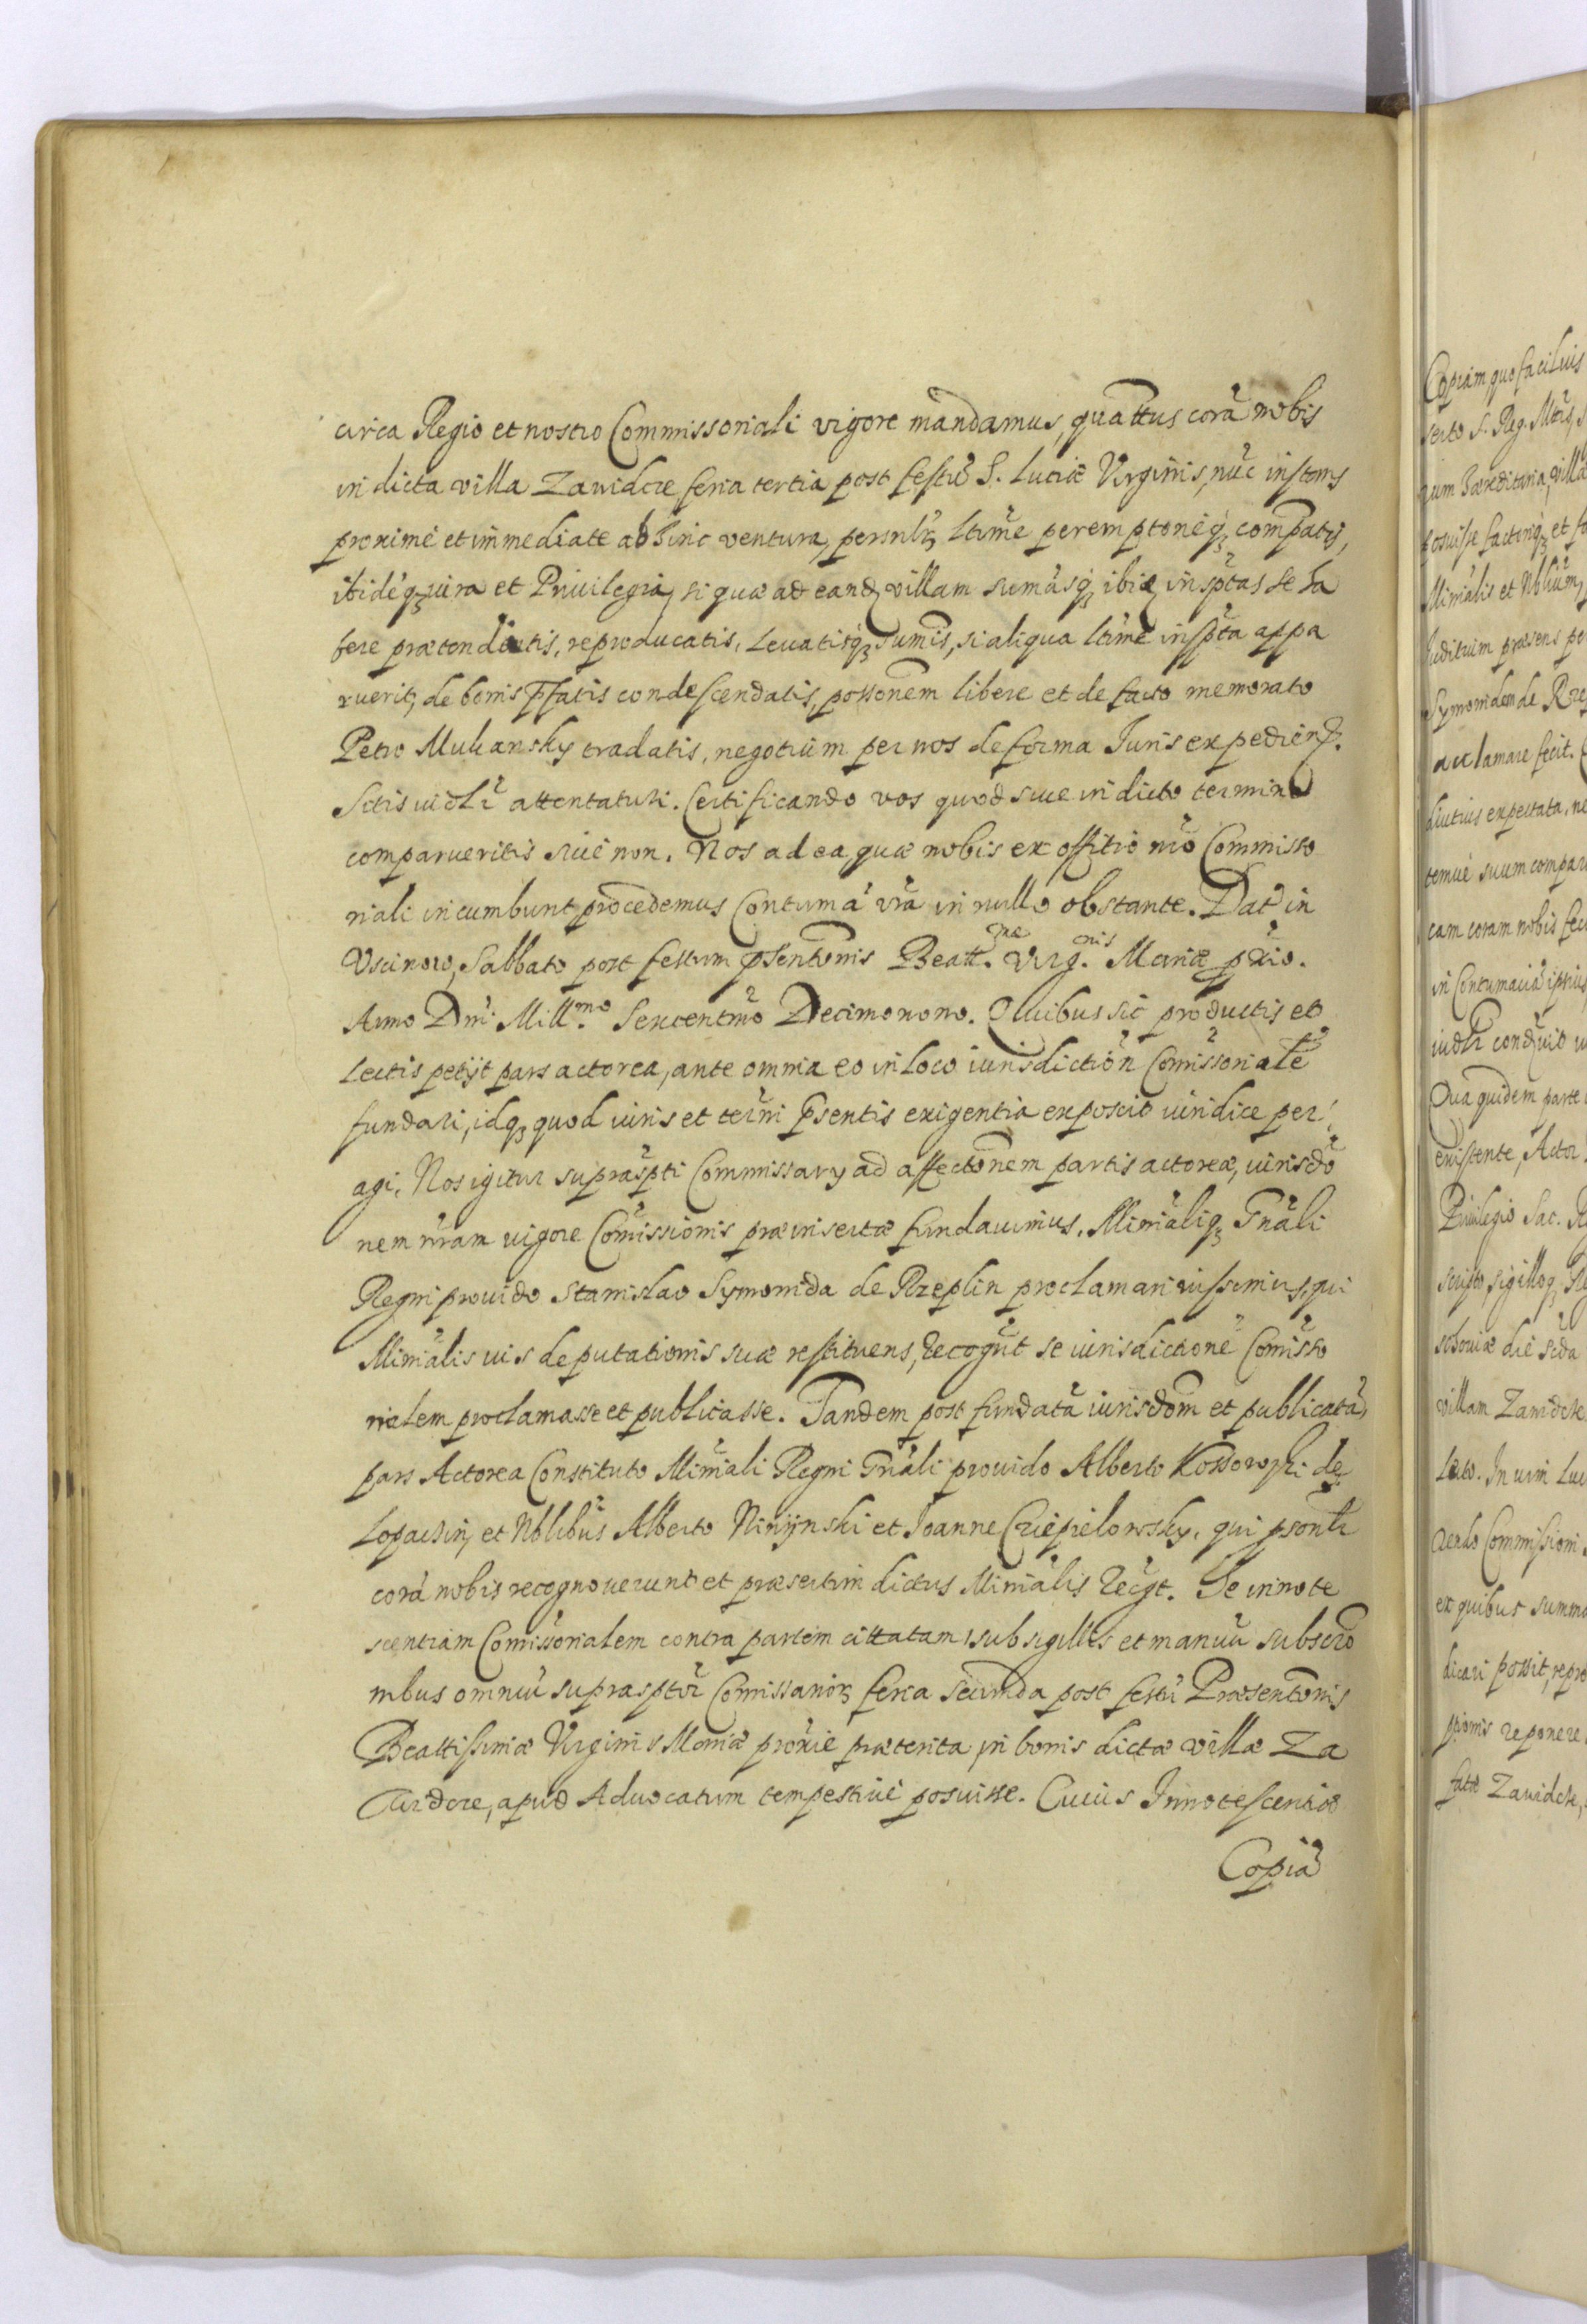 circa Regio et nostro Commissoriali vigore mandamus, quattus corā nobis
in dicta villa Zawidcze feria tertia post festū S. Luciæ Virginis, nūc instens
proximè et immediate abhinc ventura, persnlr, ltīme peremptoneq₃ compatis,
ibidéq₃ iura et Priuilegia, si quæ ad eand villam sumāsq₃ ibid insptas se ha
bere prætenditis, reproducatis, Leuatisq₃ sumīs, si aliqua ltīme inspta appa
ruerit, de bonis pfatis condescendatis, possonem libere et de facto memorato
Petro Mukansky tradatis, negotium per nos de forma Iuris expediend.
Sctis violr attentaturi. Certificando vos quod siue in dicto termino
comparueritis siue non. Nos ad ea quæ nobis ex offitio nrō Commisso
riali incumbunt procedemus Contumā vrā in nullo obstante. Dat in
Uscinow, Sabbato post festum psentonis Beattmæ Virgnis Mariæ pxīo.
Anno Dnī Millmo Sexcentmō Decimonono. Quibus sic productis et
Lectis petijt pars actorea, ante omnia eo in loco iurisdiction Comissorialē
fundari, idq₃ quod iuris et termī psentis exigentia exposcit iuridice per
agi. Nos igitur suprāspti Commissary ad affectonem partis actoreæ, iurisdō
nem nrām vigore Comissionis præinsertæ fundauimus. Miniāliq₃ Gnāli
Regni prouido Stanislao Symonida de Rzeplin proclamari iussimus, qui
Miniālis uis deputationis suæ restituens, recogūt se iurisdictionē Comisso
rialem proclamasse et publicasse. Tandem post fundatā iurisdōm et publicatā,
pars Actorea Constituto Miniali Regni Gnāli prouido Alberto Kossowski de
Lopachin, et Nblibus Alberto Ninijnski et Joanne Cziepielowsky, qui psontr
corā nobis recognouerunt et præsertim dictus Miniālis recgt. Se innote
scentiam Comissorialem contra partem cittatam, sub sigillis et manuū subscrō
nibus omniū suprasptor Comissarior₃ feria secunda post festū Præsentonis
Beattissimæ Virginis Mariæ proxīe præterita, in bonis dictæ villæ Za
widcze, apud Aduocatum tempestiuè posuisse. Cuius Innotescentiæ
Copiā
Copiam, quo facilius
serto S. Reg. Mttis
Symonidem de Rze
acclamare fecit.
diutius expectata, ne
cam coram nobis fec
in Contumaciā ipsius
Qua quidem parte
existente, Actor
Priuilegio Sac. R
villam Zawidcze
Commissioni
ex quibus summa
dicari possit, repro
Zawidcze,